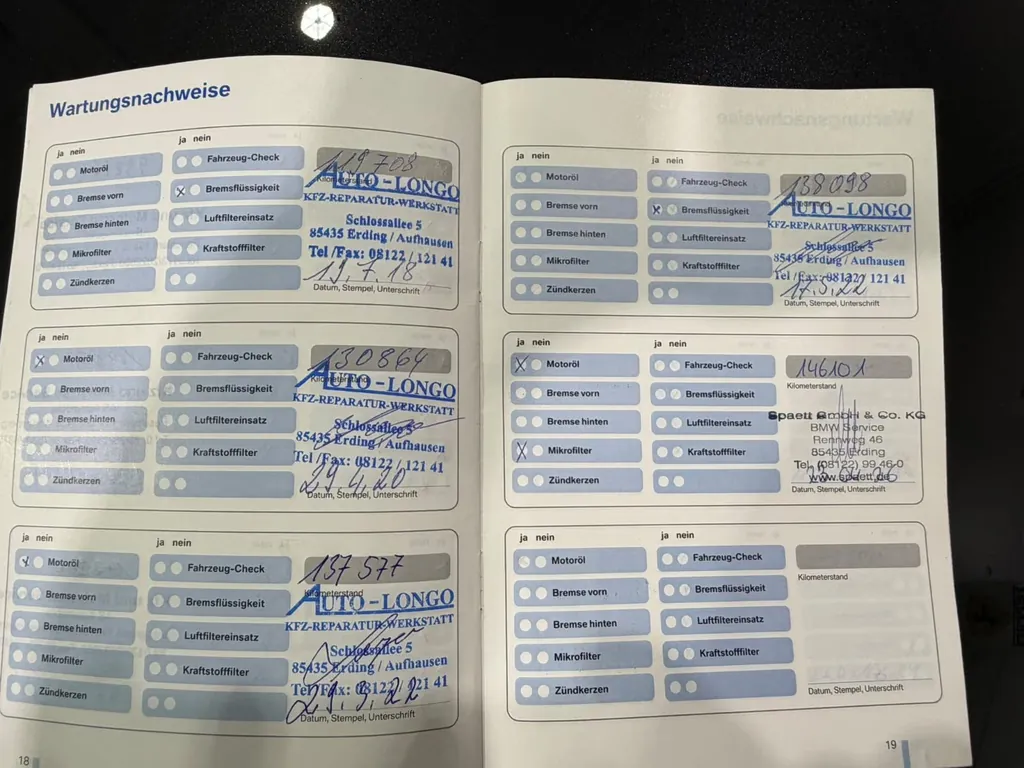 Wartungsnachweise
ja nein
ja nein
Motoröl
Fahrzeug-Check
119 708
Kilometerstand
Bremse vorn
Bremsflüssigkeit
AUTO-LONGO
KFZ-REPARATUR-WERKSTATT
Bremse hinten
Luftfiltereinsatz
Schlossallee 5
85435 Erding / Aufhausen
Mikrofilter
Kraftstofffilter
Tel /Fax: 08122 / 121 41
19.7.18
Zündkerzen
Datum, Stempel, Unterschrift
ja nein
ja nein
Motoröl
Fahrzeug-Check
130864
Kilometerstand
Bremse vorn
Bremsflüssigkeit
AUTO-LONGO
KFZ-REPARATUR-WERKSTATT
Bremse hinten
Luftfiltereinsatz
Schlossallee 5
85435 Erding / Aufhausen
Mikrofilter
Kraftstofffilter
Tel /Fax: 08122 / 121 41
29.4.20
Zündkerzen
Datum, Stempel, Unterschrift
ja nein
ja nein
Motoröl
Fahrzeug-Check
137577
Kilometerstand
Bremse vorn
Bremsflüssigkeit
AUTO-LONGO
KFZ-REPARATUR-WERKSTATT
Bremse hinten
Luftfiltereinsatz
Schlossallee 5
85435 Erding / Aufhausen
Mikrofilter
Kraftstofffilter
Tel /Fax: 08122 / 121 41
29.3.22
Zündkerzen
Datum, Stempel, Unterschrift
18
ja nein
ja nein
Motoröl
Fahrzeug-Check
138098
Bremse vorn
Bremsflüssigkeit
AUTO-LONGO
KFZ-REPARATUR-WERKSTATT
Bremse hinten
Luftfiltereinsatz
Schlossallee 5
85435 Erding / Aufhausen
Mikrofilter
Kraftstofffilter
Tel /Fax: 08122 / 121 41
17.5.22
Zündkerzen
Datum, Stempel, Unterschrift
ja nein
ja nein
Motoröl
Fahrzeug-Check
146101
Kilometerstand
Bremse vorn
Bremsflüssigkeit
Spaett GmbH & Co. KG
BMW Service
Bremse hinten
Luftfiltereinsatz
Rennweg 46
85435 Erding
Mikrofilter
Kraftstofffilter
Tel. (08122) 99 46-0
www.spaett.de
Zündkerzen
Datum, Stempel, Unterschrift
ja nein
ja nein
Motoröl
Fahrzeug-Check
Kilometerstand
Bremse vorn
Bremsflüssigkeit
Bremse hinten
Luftfiltereinsatz
Mikrofilter
Kraftstofffilter
Zündkerzen
Datum, Stempel, Unterschrift
19